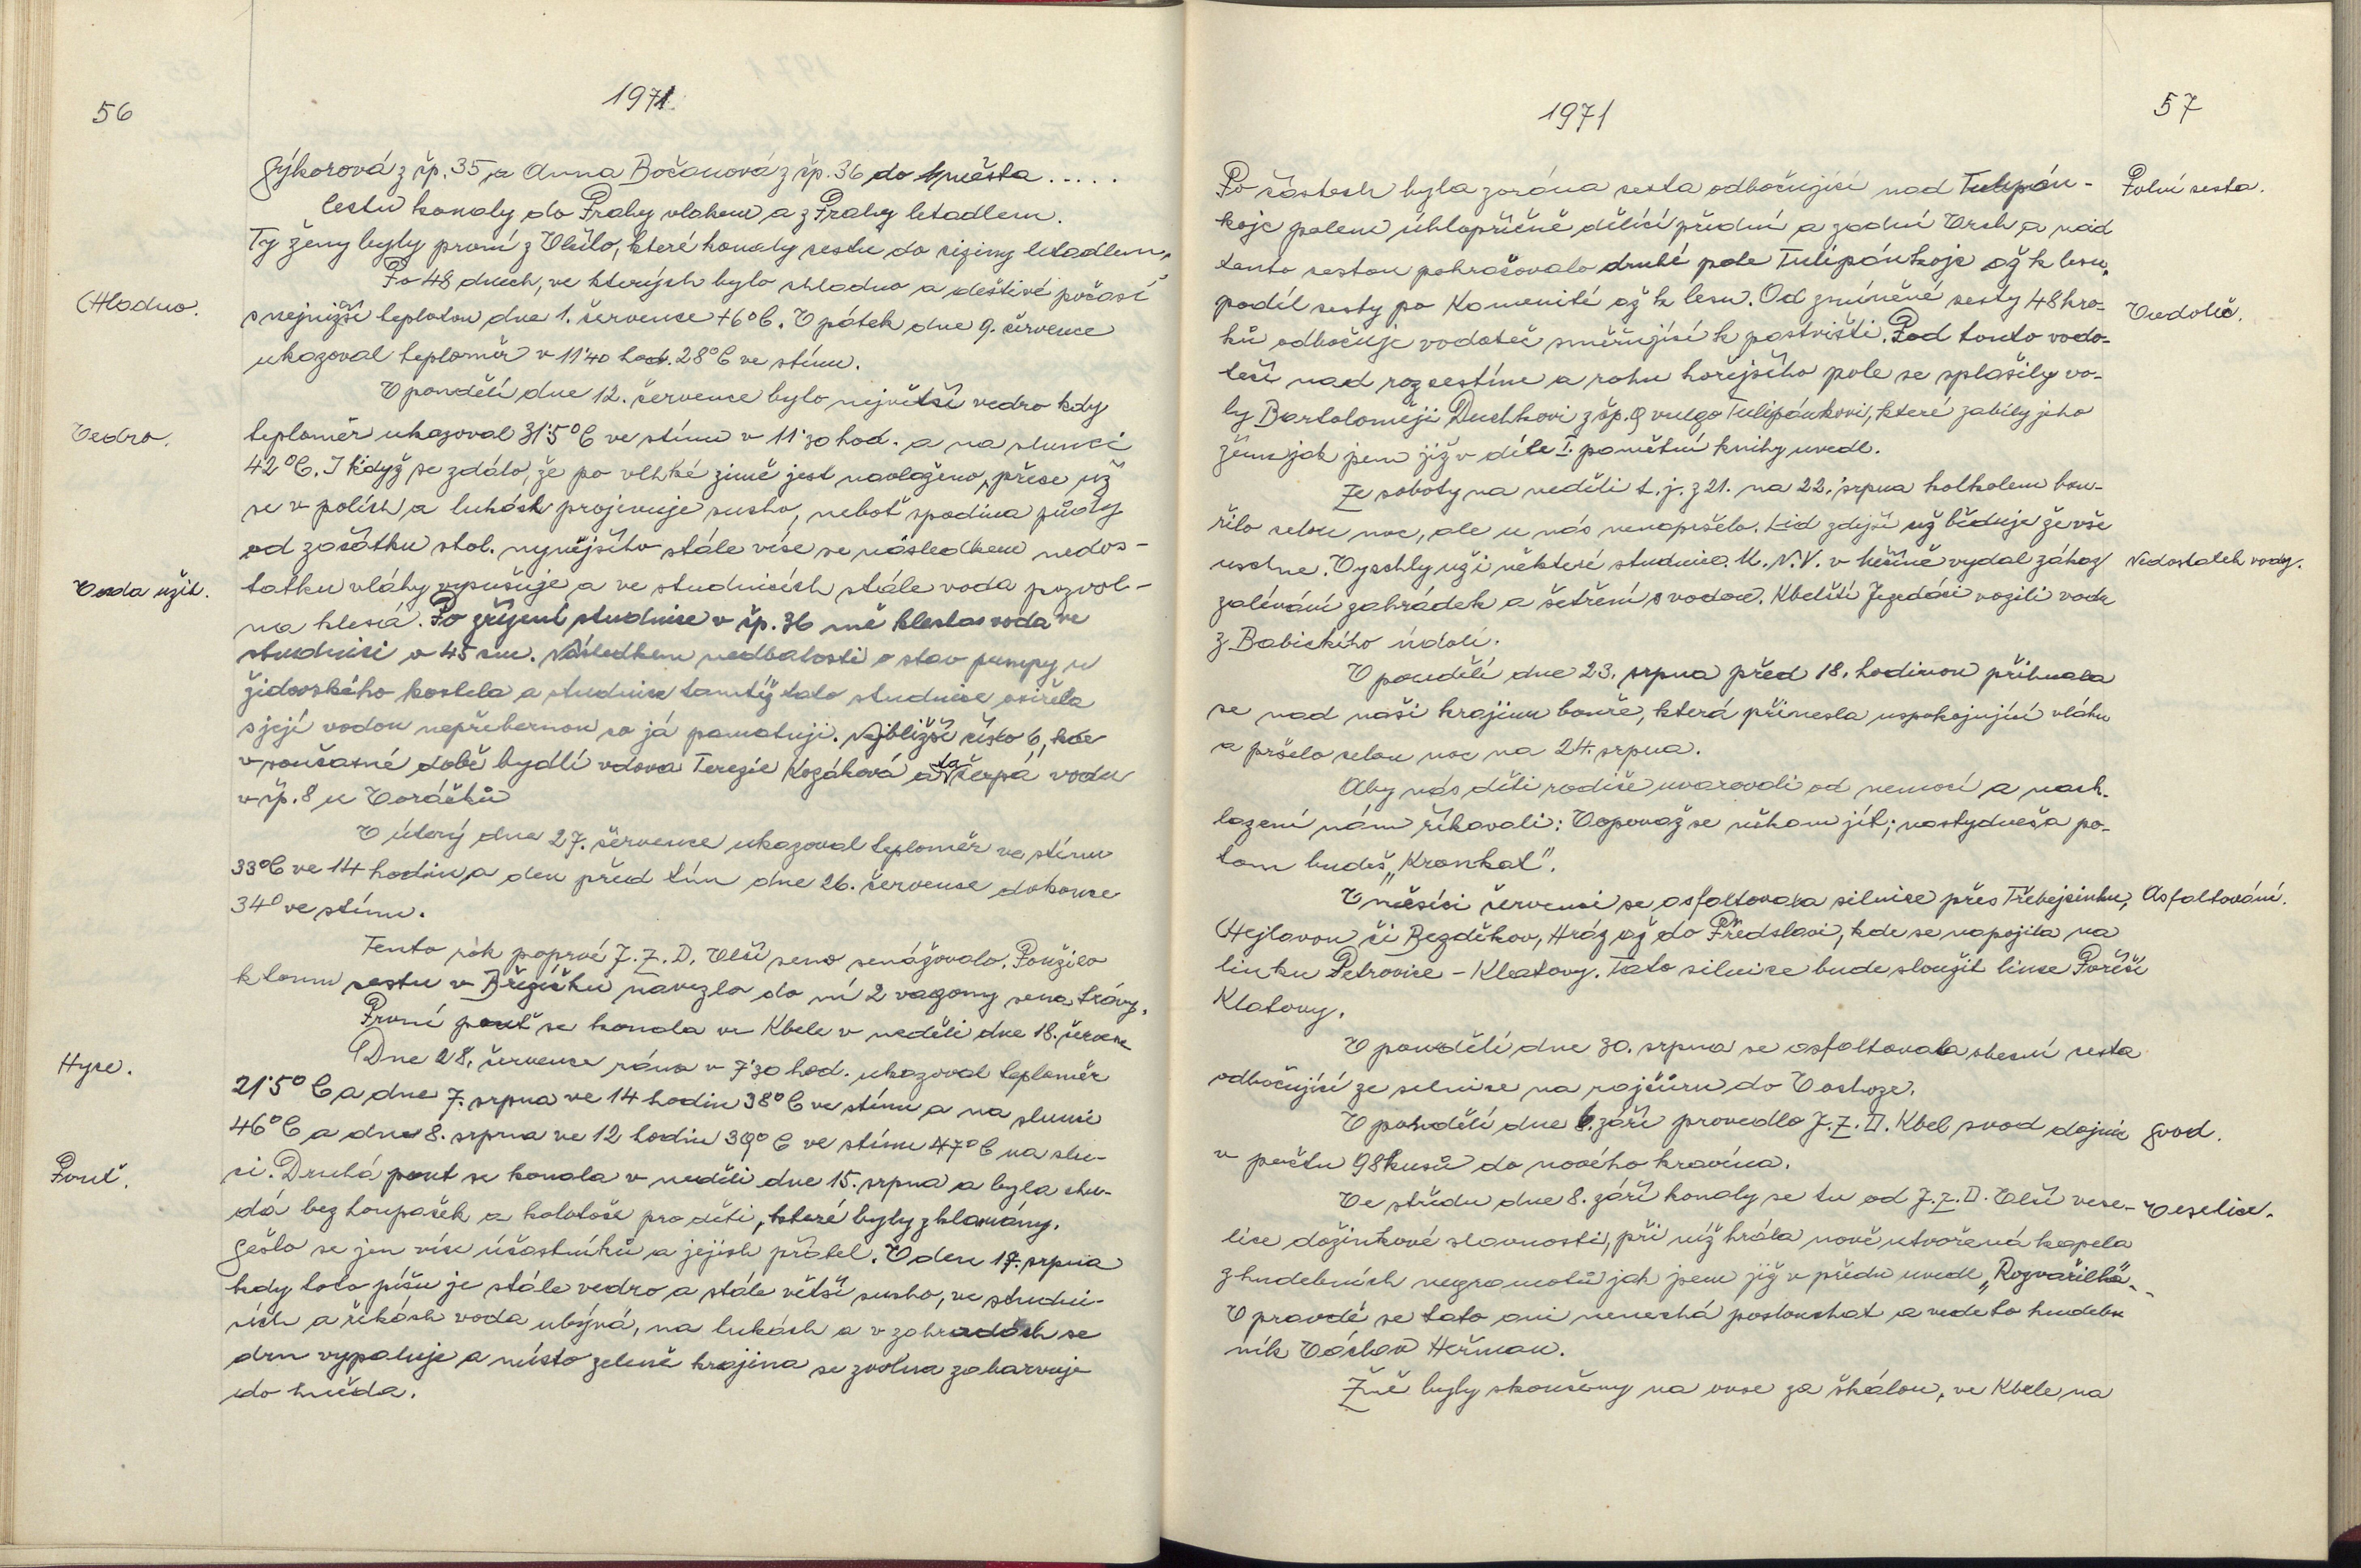 56
1971
Sýkorová z čp. 35 a Anna Bočanová z čp. 36 do města.....
Cestu konaly do Prahy vlakem a z Prahy letadlem.
Ty ženy byly první z Vlčí, které konaly cestu do ciziny letadlem.
Chladno.
Po 48 dnech, ve kterých bylo chladno a deštivé počasí
s nejnižší teplotou dne 1. července +6°C. V pátek dne 9. července
ukazoval teploměr v 11'40 hod. 28°C ve stínu.
V pondělí dne 12. července bylo největší vedro kdy
Vedro.
teploměr ukazoval 31'5°C ve stínu v 11'30 hod. a na slunci
42°C. I když se zdálo, že po vlhké zimě jest navlaženo, přece už
se v polích a lukách projevuje sucho, neboť spodina půdy
od začátku stol. nynějšího stále více se následkem nedos-
Voda užit.
tatku vláhy vysušuje a ve studnicích stále voda pozvol-
na klesá. Po zřízení studnice v čp. 36 mě klesla voda ve
studnici o 45 cm. Následkem nedbalosti o stav pumpy u
židovského kostela a studnice tamtéž tato studnice osiřela
s její vodou nepřebernou co já pamatuji. Nejbližší číslo 6, kde
v současné době bydlí vdova Terezie Kozáková a ta čerpá vodu
v čp. 8 u Voráčků
V úterý dne 27. července ukazoval teploměr ve stínu
33°C ve 14 hodin, a den před tím dne 26. července dokonce
34° ve stínu.
Tento rok poprvé J.Z.D. Vlčí seno senážovalo. Použilo
k tomu cestu v Březíčku navezlo do ní 2 vagony sena trávy.
První pouť se konala ve Kbele v neděli dne 18. července
Hyce.
Dne 28. července ráno v 7'30 hod. ukazoval teploměr
21'5°C a dne 7. srpna ve 14 hodin 38°C ve stínu a na slunci
46°C a dne 8. srpna ve 12 hodin 39°C ve stínu 47°C na slun-
Pouť.
ci. Druhá pout se konala v neděli dne 15. srpna a byla chu-
dá bez houpaček a kolotoče pro děti, které byly zklamány.
Sešlo se jen více účastníků a jejich přátel. V den 17. srpna
kdy toto píšu je stále vedro a stále větší sucho, ve studni-
cích a řekách voda ubývá, na lukách a v zahradách se
drn vypaluje a místo zeleně krajina se zvolna zabarvuje
do hněda.
1971
57
Po částech byla zorána cesta odbočující nad Tulipán-
Polní cesta.
koje polem úhlopříčně dělící přední a zadní Vrch a nad
tento cestou pokračovalo druhé pole Tulipánkoje až k lesu,
podíl cesty po Kamenité až k lesu. Od zmíněné cesty 48 kro-
Vodoteč.
ků odbočuje vodoteč směřující k pastvišti. Pod touto vodo-
tečí nad rozcestím a rohu hořejšího pole se splašily vo-
ly Bartoloměji Duchkovi z čp. 9 vulgo Tulipánkovi, které zabily jeho
ženu jak jsem již v díle I. pamětní knihy uvedl.
Ze soboty na neděli t.j. z 21. na 22. srpna kolkolem bou-
řilo celou noc, ale u nás nenapršelo. Lid zdejší už běduje že vše
uschne. Vyschly už i některé studnice. M.N.V. v vydal zákaz
Nedostatek vody.
zalévání zahrádek a šetření s vodou. Kbelští Jezedáci vozili vodu
z Babického údolí.
V pondělí dne 23. srpna před 18. hodinou přihnala
se nad naši krajinu bouře, která přinesla uspokojující vláhu
a pršelo celou noc na 24. srpna.
Aby nás děti rodiče uvarovali od nemocí a nach-
lazení nám říkavali: Vopovaž se někam jít; nastydneš a po-
tom budeš „Kronkat".
V měsíci červenci se asfaltovala silnice přes Třebejcinku,
Asfaltování.
Hejlavou či Bezděkov, Hráz až do Předslavi, kde se napojila na
linku Petrovice - Klatovy. Tato silnice bude sloužit lince Poříčí
Klatovy.
V pondělí dne 30. srpna se asfaltovala obecní cesta
odbočující ze silnice na rajčůru do Voshoze.
V pondělí dne 6. září provedlo J.Z.D. Kbel svod dojnic
Svod.
v počtu 98 kusů do nového kravína.
Ve středu dne 8. září konaly se tu od J.Z.D. Vlčí vese-
Veselice.
lice dožínkové slavnosti, při níž hrála nově utvořená kapela
z hudebních negramotů jak jsem již v předu uvedl „Rozvařilká"
V pravdě se tato ani nenechá poslouchat a vede to hudeb-
ník Václav Heřman.
Žně byly skončeny na ovse za škálou, ve Kbele na